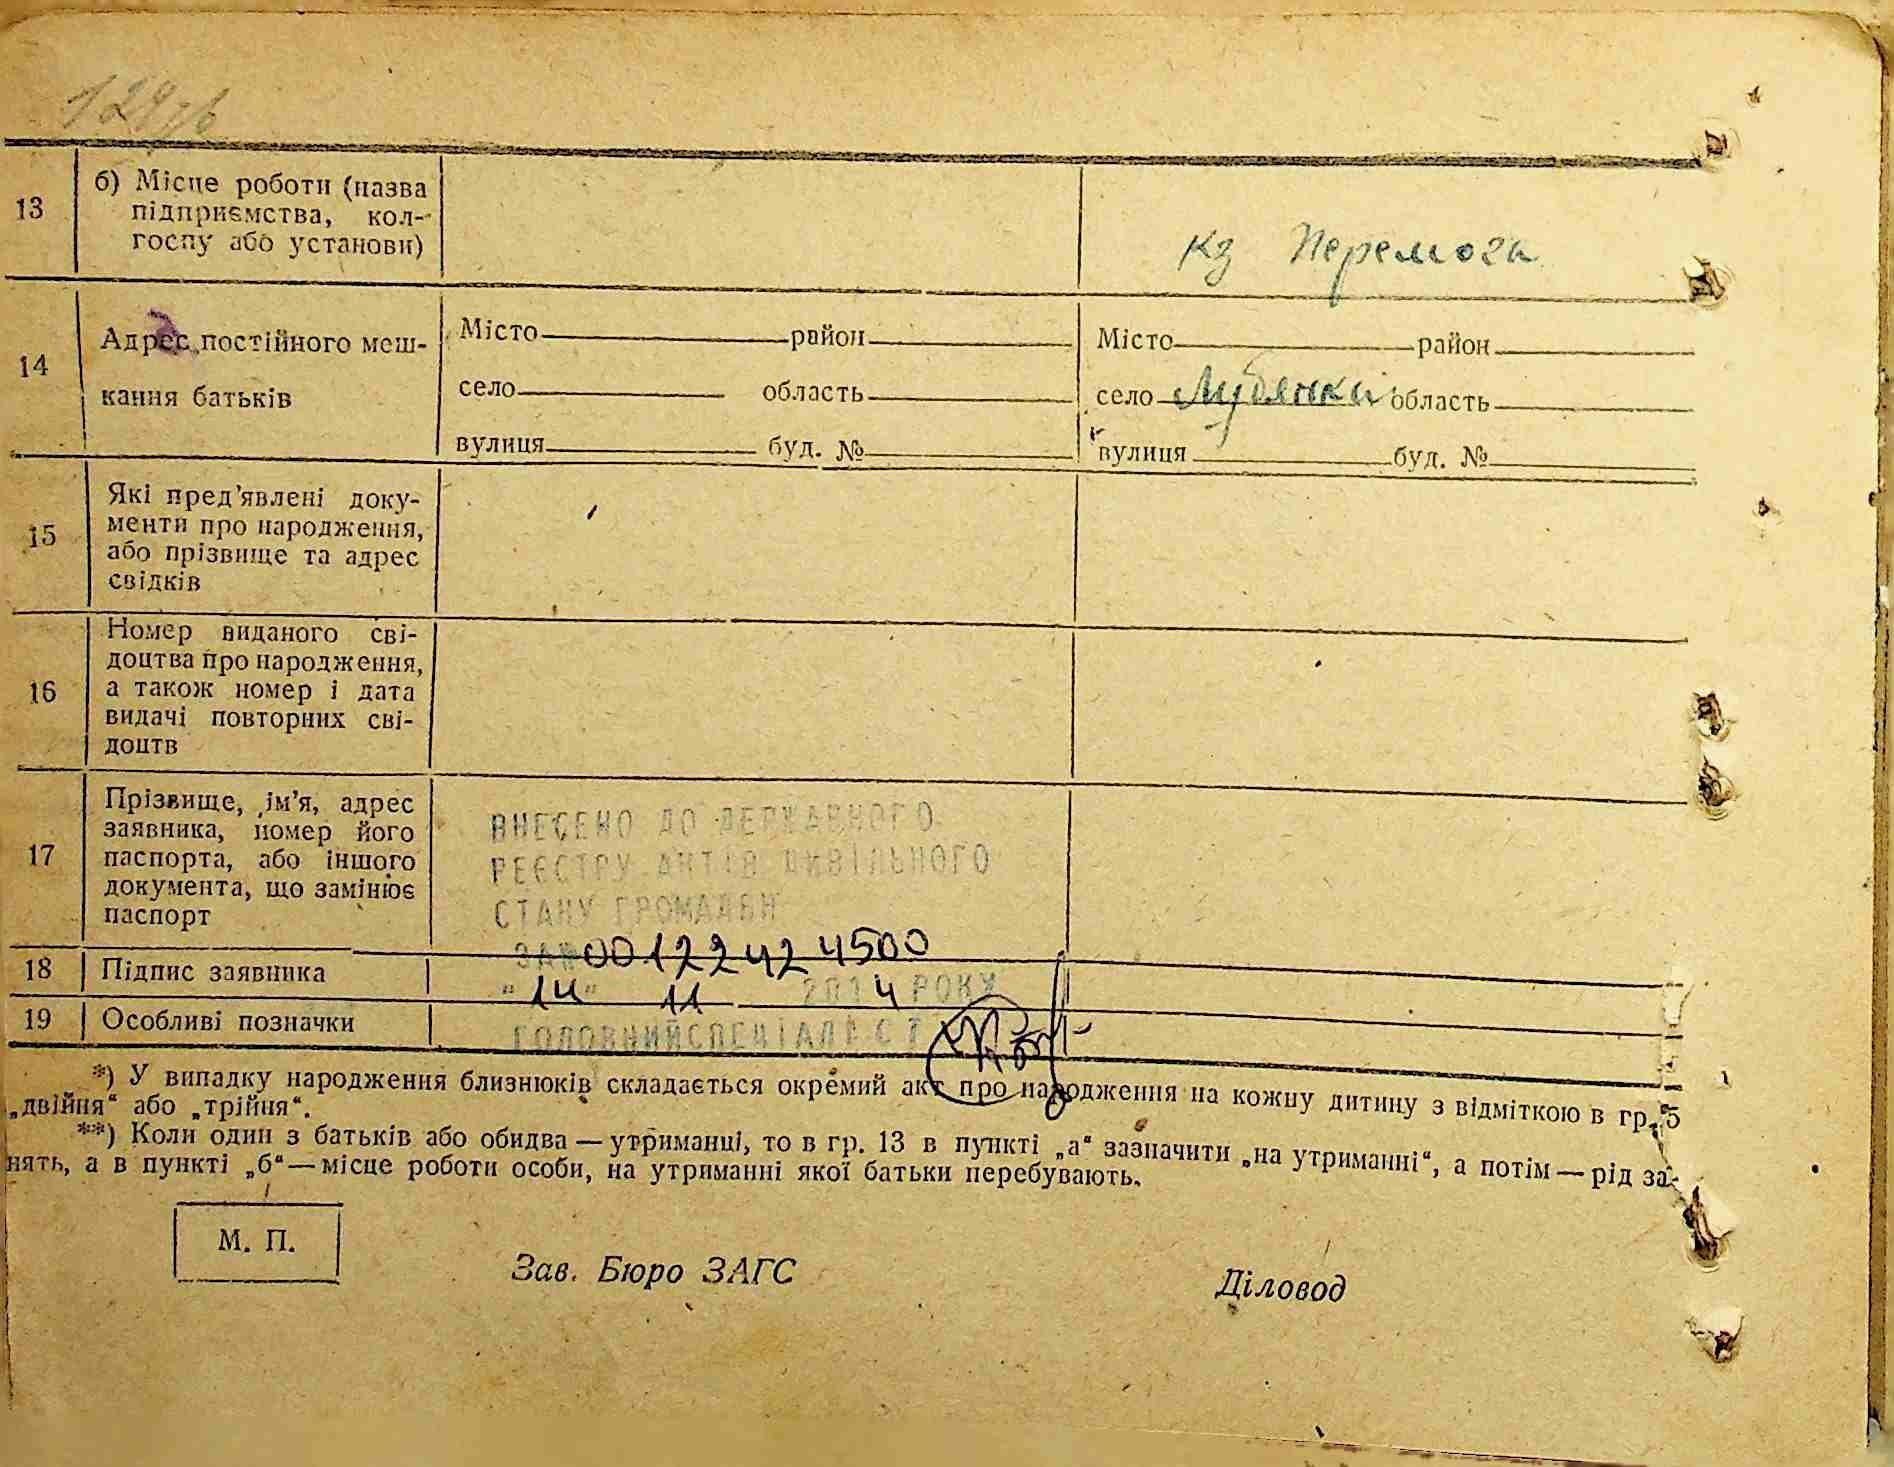 129зв
13
б) Місце роботи (назва
підприємства, кол-
госпу або установи)
кз Перемога
14
Адрес постійного меш-
кання батьків
Місто район
село область
вулиця буд. №
Місто район
село Лубянки область
вулиця буд. №
15
Які пред'явлені доку-
менти про народження,
або прізвище та адрес
свідків
16
Номер виданого сві-
доцтва про народження,
а також номер і дата
видачі повторних сві-
доцтв
17
Прізвище, ім'я, адрес
заявника, номер його
паспорта, або іншого
документа, що замінює
паспорт
ВНЕСЕНО ДО ДЕРЖАВНОГО
РЕЄСТРУ АКТІВ ЦИВІЛЬНОГО
СТАНУ ГРОМАДЯН
ЗА№ 00122424500
18
Підпис заявника
"14" 11 2014 РОКУ
19
Особливі позначки
ГОЛОВНИЙ СПЕЦІАЛІСТ
*) У випадку народження близнюків складається окремий акт про народження на кожну дитину з відміткою в гр. 5
„двійня“ або „трійня“.
**) Коли один з батьків або обидва — утриманці, то в гр. 13 в пункті „а“ зазначити „на утриманні“, а потім — рід за-
нять, а в пункті „б“ — місце роботи особи, на утриманні якої батьки перебувають.
М. П.
Зав. Бюро ЗАГС
Діловод